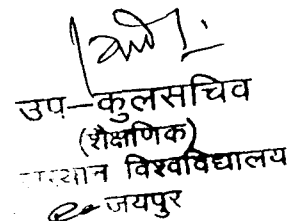 उप-कुलसचिव
(शैक्षणिक)
विश्वविद्यालय
जयपुर